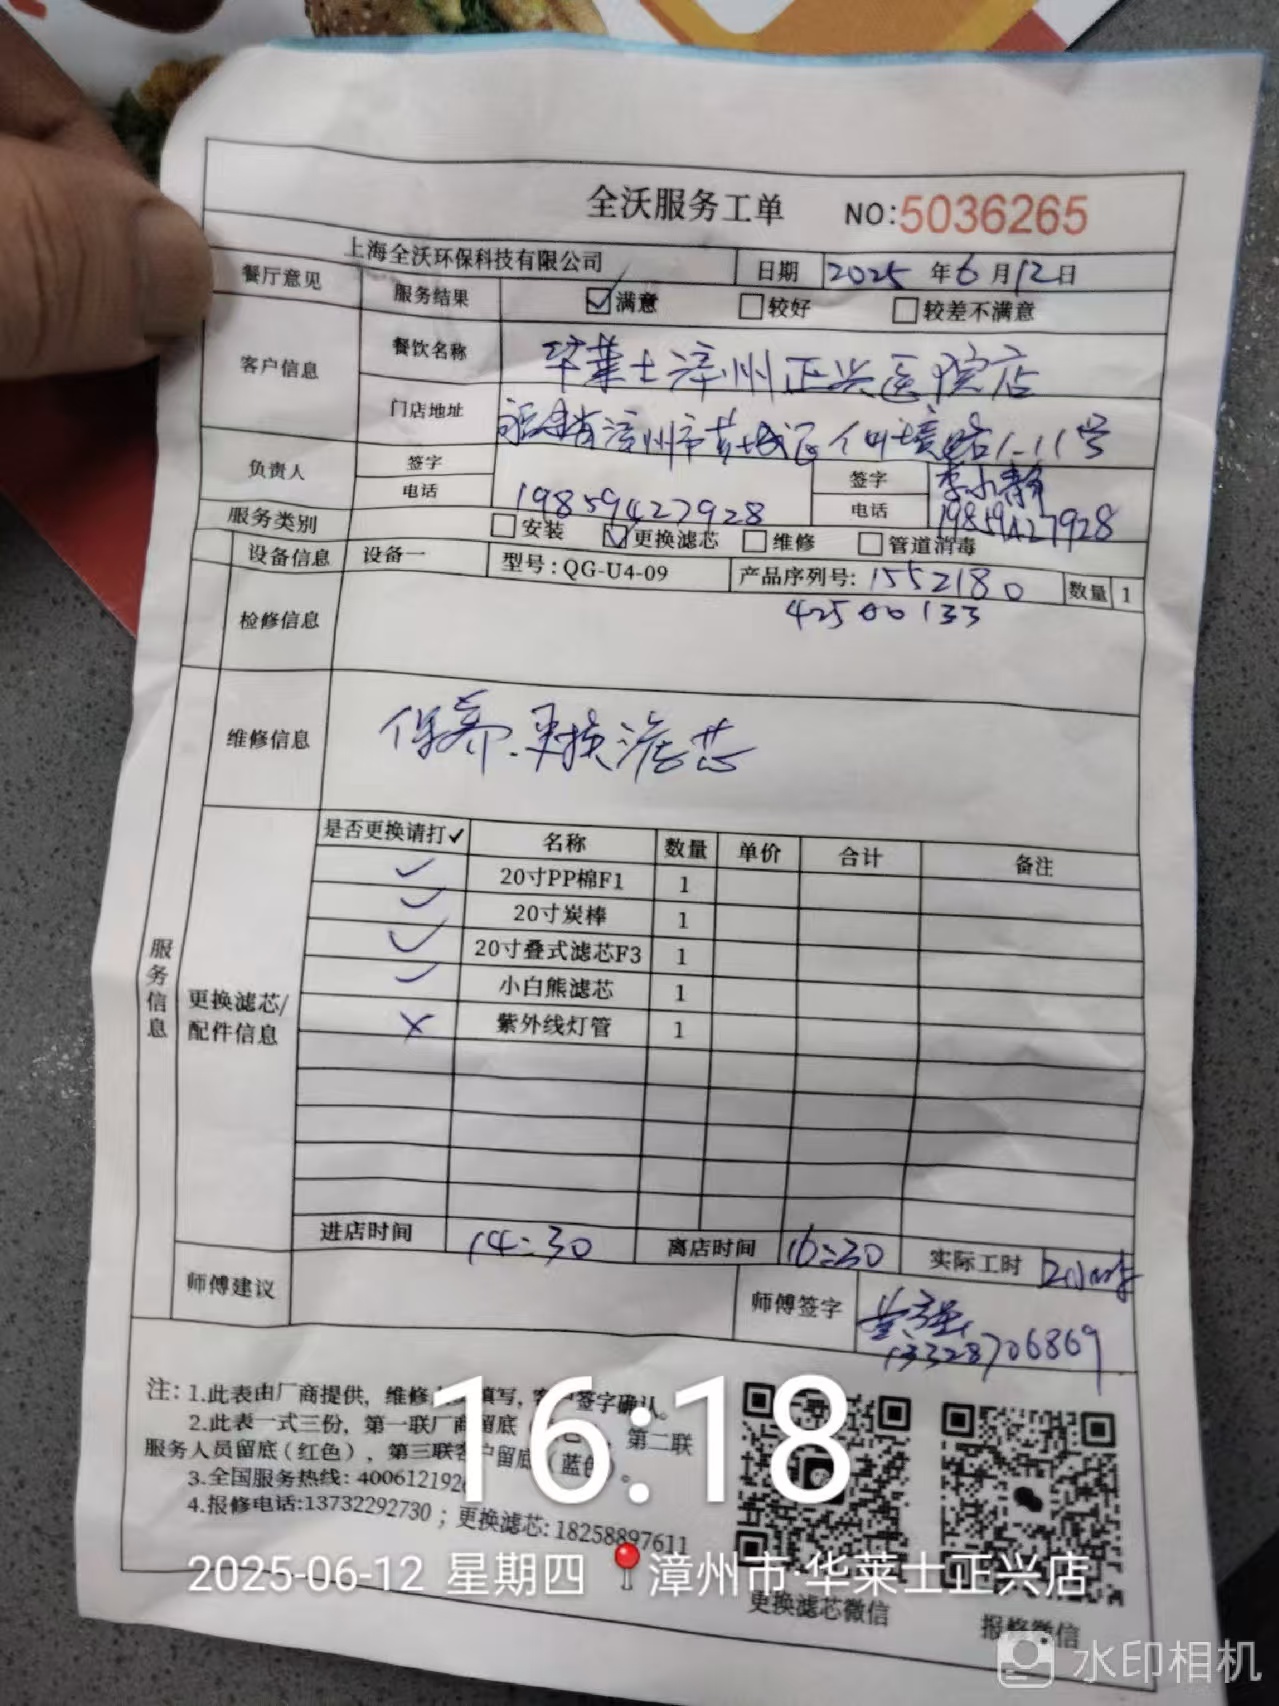 全沃服务工单 NO:5036265
上海全沃环保科技有限公司 日期 2025 年 6 月 12 日
餐厅意见 服务结果 ☑满意 □较好 □较差不满意
客户信息 餐饮名称 华莱士漳州正兴医院店
门店地址 福建省漳州市芗城区 1-11号
负责人 签字 签字 李小静
电话 19859427928 电话 19859427928
服务类别 □安装 ☑更换滤芯 □维修 □管道消毒
设备信息 设备一 型号:QG-U4-09 产品序列号: 1552180 数量 1
42500133
检修信息
维修信息 保养.更换滤芯
服务信息
更换滤芯/配件信息
是否更换请打✓ 名称 数量 单价 合计 备注
✓ 20寸PP棉F1 1
✓ 20寸炭棒 1
✓ 20寸叠式滤芯F3 1
✓ 小白熊滤芯 1
× 紫外线灯管 1
进店时间 14:30 离店时间 16:30 实际工时 2小时
师傅建议 师傅签字 黄强
13328706869
注: 1.此表由厂商提供, 维修 填写, 客户签字确认。
2.此表一式三份, 第一联厂商留底 第二联
服务人员留底(红色), 第三联客户留底(蓝色)。
3.全国服务热线: 400612192
4.报修电话:13732292730 ; 更换滤芯: 18258897611
更换滤芯微信 报修微信
16:18
2025-06-12 星期四 漳州市·华莱士正兴店
水印相机